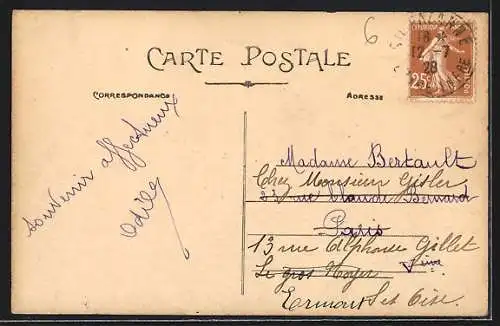 6
CARTE POSTALE
CORRESPONDANCE
ADRESSE
18 *
12 - 7
28
25c
Souvenir affectueux
Odile
Madame Bertault
Chez Monsieur Gisler
23 rue Claude Bernard
Paris
13 rue Alphonse Gillet
Le gros Noyer
Ermont S et Oise